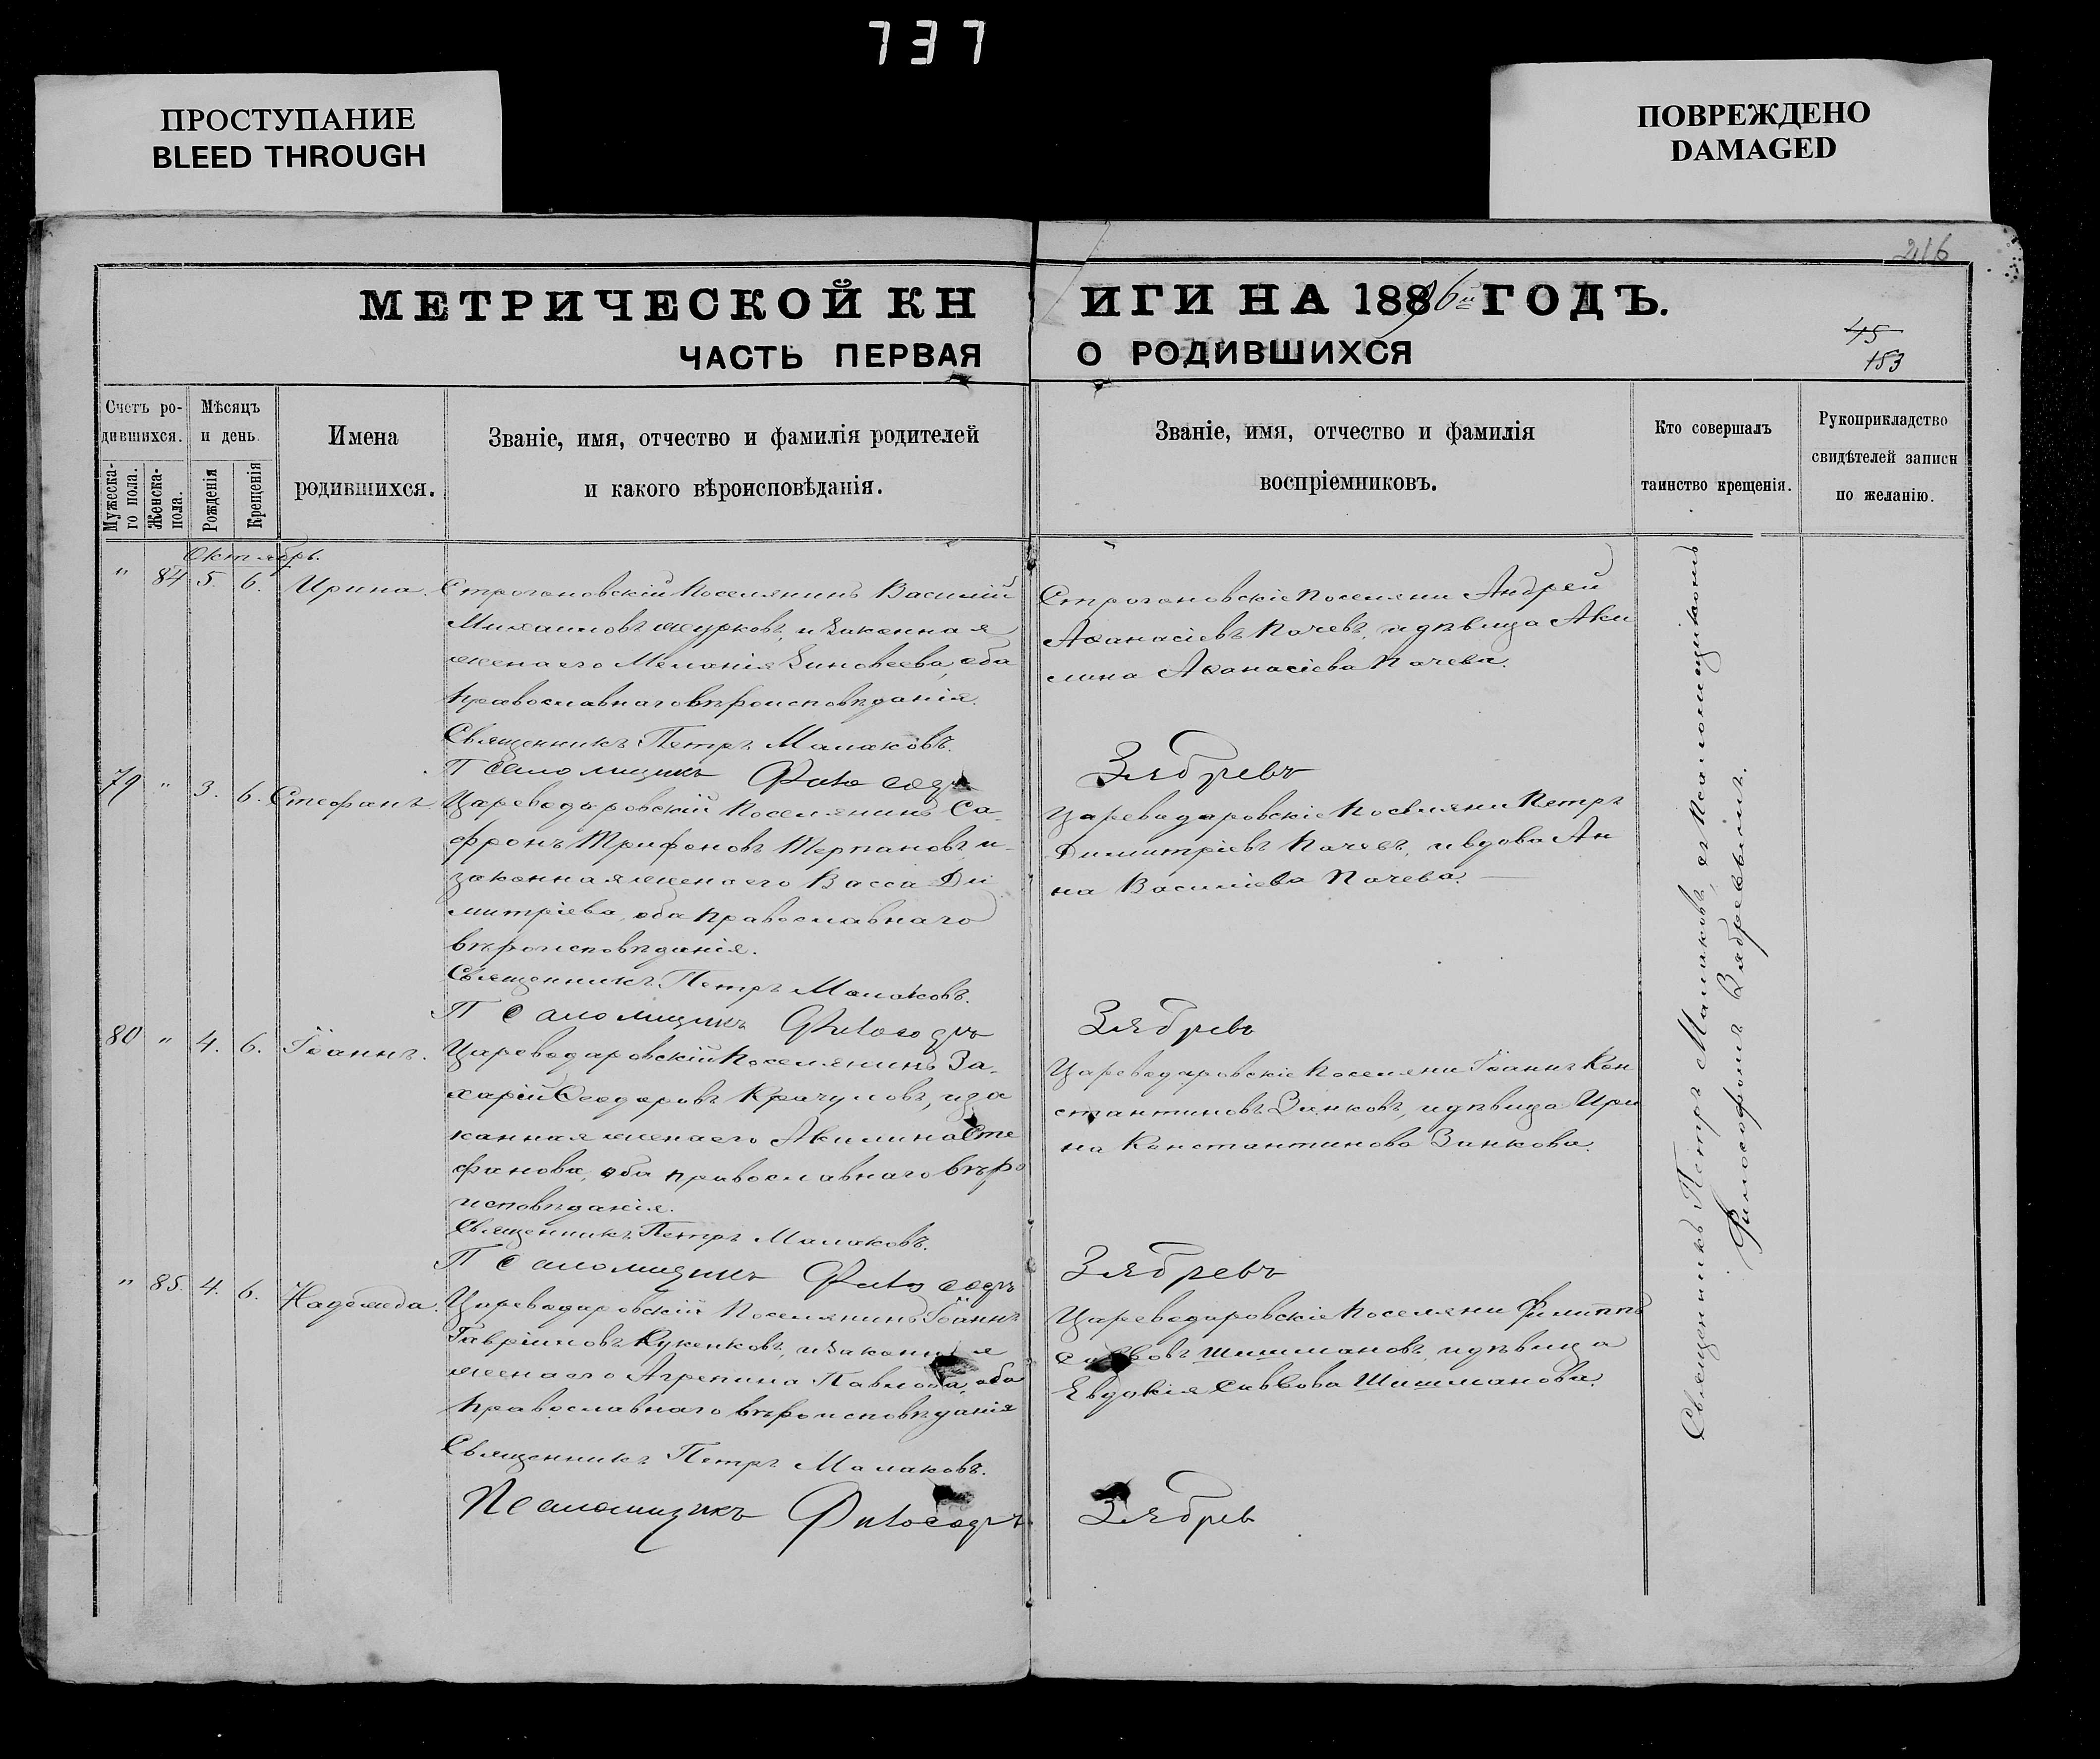 737
ПРОСТУПАНИЕ
BLEED THROUGH
ПОВРЕЖДЕНО
DAMAGED
216
МЕТРИЧЕСКОЙ КНИГИ НА 1886й ГОДЪ.
ЧАСТЬ ПЕРВАЯ О РОДИВШИХСЯ
45
153
Счетъ ро-
дившихся.
Мужеска-
го пола.
Женска-
пола.
Мѣсяцъ
и день.
Рожденія
Крещенія
Имена
родившихся.
Званіе, имя, отчество и фамилія родителей
и какого вѣроисповѣданія.
Званіе, имя, отчество и фамилія
воспріемниковъ.
Кто совершалъ
таинство крещенія.
Рукоприкладство
свидѣтелей записи
по желанію.
Октябрь.
" 84 5. 6. Ирина.
Строгановскій Поселянинъ Василій
Михаиловъ Журковъ, и законная
жена его Меланія Зиновеева, оба
православнаго вѣроисповѣданія.
Священникъ Петръ Малаковъ.
Псаломщикъ Философъ Зябревъ
Строгановскіе Поселяни Андрей
Аѳанасіевъ Пачевъ, и дѣвица Аки
лина Аѳанасіева Пачева.
79 " 3. 6. Стефанъ.
Цареведаровскій Поселянинъ Са-
фронъ Трифоновъ Терпановъ, и
законная жена его Васса Ди
митріева, оба православнаго
вѣроисповѣданія.
Священникъ Петръ Малаковъ.
Псаломщикъ Философъ Зябревъ
Цареведаровскіе Поселяни Петръ
Димитріевъ Пачевъ, и вдова Ан
на Василіева Пачева.
80 " 4. 6. Іоаннъ.
Цареведаровскій Поселянинъ За-
харій Ѳеодоровъ Крачуловъ, и за
конная жена его Акилина Сте
фанова, оба православнаго вѣро
исповѣданія.
Священникъ Петръ Малаковъ.
Псаломщикъ Философъ Зябревъ
Цареведаровскіе Поселяни Іоаннъ Кон
стантиновъ Зинковъ, и дѣвица Ири
на Константинова Зинкова.
" 85. 4. 6. Надежда.
Цареведаровскій Поселянинъ Іоаннъ
Гавріиловъ Кукенковъ, и законная
жена его Агрепина Павлова, оба
православнаго вѣроисповѣданія
Священникъ Петръ Малаковъ.
Псаломщикъ Философъ Зябрев
Цареведаровскіе Поселяни Филиппъ
Саввовъ Шишмановъ, и дѣвица
Евдокія Саввова Шишманова.
Священникъ Петръ Малаковъ, съ Псаломщикомъ
Философомъ Зябревымъ.